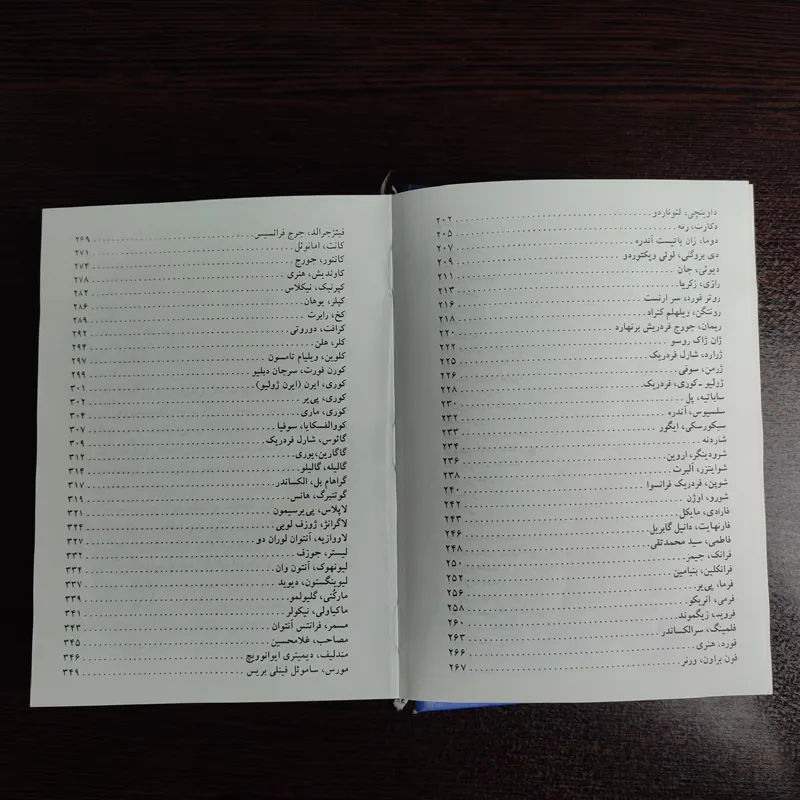 داوینچی، لئوناردو ۲۰۲
دکارت، رنه ۲۰۵
دوما، ژان باتیست آندره ۲۰۷
دی بروگلی، لوئی ویکتوردو ۲۰۹
دیوئی، جان ۲۱۱
رازی، زکریا ۲۱۳
روتر فورد، سر ارنست ۲۱۶
رونتگن، ویلهلم کنراد ۲۱۸
ریمان، جورج فردریش برنهارد ۲۲۰
ژان ژاک روسو ۲۲۲
ژرارد، شارل فردریک ۲۲۵
ژرمن، سوفی ۲۲۶
ژولیو ـ کوری، فردریک ۲۲۸
ساباتیه، پل ۲۳۰
سلسیوس، آندره ۲۳۲
سیکورسکی، ایگور ۲۳۳
شاردنه ۲۳۴
شرودینگر، اروین ۲۳۶
شوایتزر، آلبرت ۲۳۸
شوپن، فردریک فرانسوا ۲۴۰
شورو، اوژن ۲۴۲
فارادی، مایکل ۲۴۳
فارنهایت، دانیل گابریل ۲۴۶
فاطمی، سید محمدتقی ۲۴۸
فرانک، جیمز ۲۵۰
فرانکلین، بنیامین ۲۵۲
فرما، پی‌یر ۲۵۶
فرمی، انریکو ۲۵۸
فروید، زیگموند ۲۶۰
فلمینگ، سرالکساندر ۲۶۳
فورد، هنری ۲۶۶
فون براون، ورنر ۲۶۷
فیتزجرالد، جرج فرانسیس ۲۶۹
کانت، امانوئل ۲۷۱
کانتور، جورج ۲۷۴
کاوندیش، هنری ۲۷۸
کپرنیک، نیکلاس ۲۸۲
کپلر، یوهان ۲۸۶
کخ، رابرت ۲۸۹
کرافت، دوروتی ۲۹۲
کلر، هلن ۲۹۴
کلوین، ویلیام تامسون ۲۹۷
کورن فورت، سرجان دبلیو ۲۹۹
کوری، ایرن (ایرن ژولیو) ۳۰۱
کوری، پی‌یر ۳۰۲
کوری، ماری ۳۰۴
کووالفسکایا، سوفیا ۳۰۷
گائوس، شارل فردریک ۳۰۹
گاگارین،یوری ۳۱۲
گالیله، گالیلو ۳۱۴
گراهام بل، الکساندر ۳۱۷
گوتنبرگ، هانس ۳۱۹
لاپلاس، پی‌یرسیمون ۳۲۱
لاگرانژ، ژوزف لویی ۳۲۴
لاووازیه، آنتوان لوران دو ۳۲۷
لیستر، جوزف ۳۳۲
لیونهوک، آنتون وان ۳۳۴
لیوینگستون، دیوید ۳۳۷
مارکُنی، گلیولمو ۳۳۹
ماکیاولی، نیکولر ۳۴۱
مسمر، فرانتس آنتوان ۳۴۳
مصاحب، غلامحسین ۳۴۵
مندلیف، دیمیتری ایوانوویچ ۳۴۶
مورس، ساموئل فینلی بریس ۳۴۹